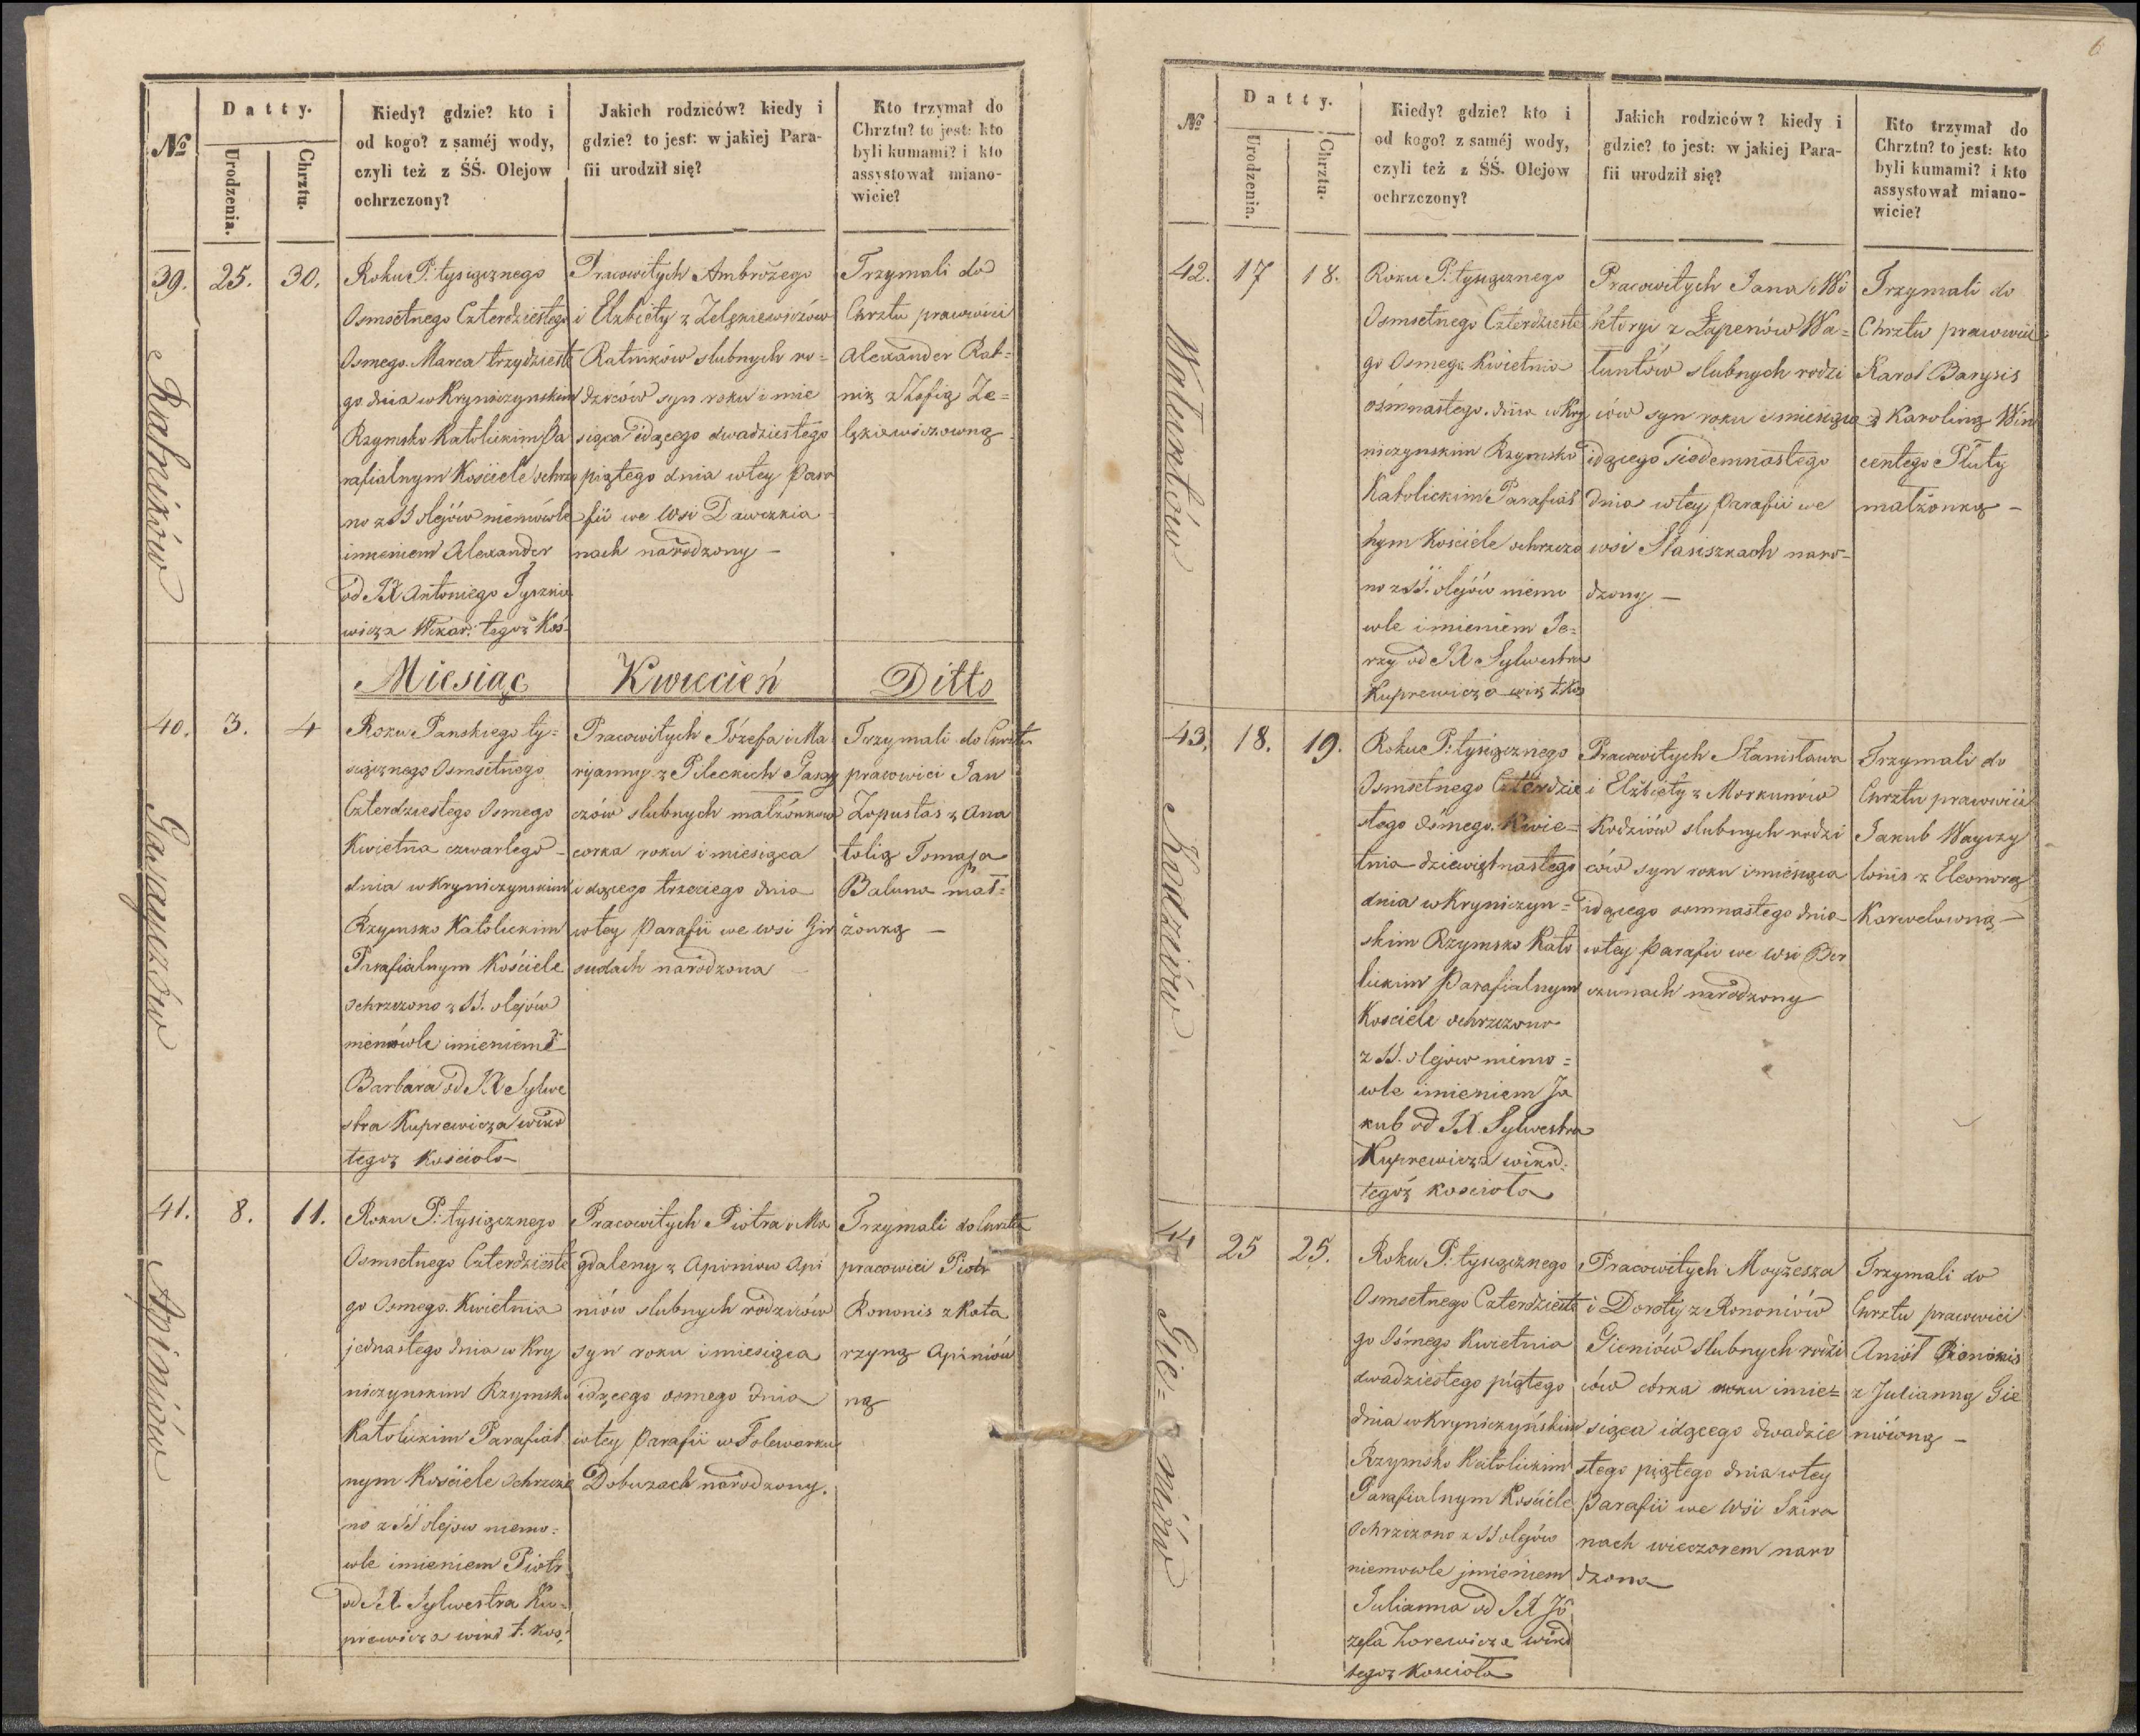 №
Datty.
Urodzenia.
Chrztu.
Kiedy? gdzie? kto i
od kogo? z saméj wody,
czyli też z ŚŚ. Olejow
ochrzczony?
Jakich rodziców? kiedy i
gdzie? to jest: w jakiej Para-
fii urodził się?
Kto trzymał do
Chrztu? to jest: kto
byli kumami? i kto
assystował miano-
wicie?
39.
Ratników
25.
30.
Roku P: tysiącznego
Osmsetnego Czterdziestego
Osmego. Marca trzydzieste
go dnia w Kryniczynskim
Rzymsko Katolickim Pa
rafialnym Kościele ochrzo
no z SS olejów niemówle
imieniem Alexander
od JX Antoniego Tyszkie
wicza Wikar: tegoż Koś-
Pracowitych Ambrożego
i Elżbiety z Zelękiewiczów
Ratników slubnych ro=
dziców syn roku i mie
siąca idącego dwadziestego
piątego dnia w tey Para
fii we Wsi Dawczkia
nach narodzony —
Trzymali do
Chrztu pracowici
Alexander Rat=
nik z Zofią Ze=
lękiewiczowną
Miesiąc Kwiecień Ditto
40.
Garayczów
3.
4
Roku Panskiego ty=
siącznego Osmsetnego
Czterdziestego Osmego
Kwietna czwartego –
dnia w Kryniczynskim
Rzymsko Katolickim
Parafialnym Kościele
ochrzczono z SS. olejów
niemówle imieniem
Barbara od JX Sylwe
stra Kuprewicza wikar
tegoż Kościoła
Pracowitych Józefa i Ma
ryanny z Pileckich Garay
czów slubnych małżonkow
corka roku i miesiąca
idącego trzeciego dnia
w tey Parafii we wsi Gir
sudach narodzona
Trzymali do Chrztu
pracowici Jan
Zopustas z Ana
tolią Tomasza
Baluna mał=
żonką —
41.
Apiniów
8.
11.
Roku P: tysiącznego
Osmsetnego Czterdzieste
go Osmego. Kwietnia
jednastego dnia w Kry
niczynskim Rzymsko
Katolickim Parafial
nym Kościele ochrzczo
no z SS olejow niemo=
wle imieniem Piotr
od JX. Sylwestra Ku=
prewicza wikar t. Koś:
Pracowitych Piotra i Ma
gdaleny z Apiniow Api
niów slubnych rodziców
syn roku i miesiąca
idącego osmego dnia
w tey Parafii w Folwarku
Dobuzach narodzony.
Trzymali do Chrztu
pracowici Piotr
Rononis z Kata
rzyną Apiniów
ną
6
№
Datty.
Urodzenia.
Chrztu.
Kiedy? gdzie? kto i
od kogo? z saméj wody,
czyli też z ŚŚ. Olejow
ochrzczony?
Jakich rodziców? kiedy i
gdzie? to jest: w jakiej Para-
fii urodził się?
Kto trzymał do
Chrztu? to jest: kto
byli kumami? i kto
assystował miano-
wicie?
42.
Watuntów
17
18.
Roku P. tysiącznego
Osmsetnego Czterdzieste
go Osmego Kwietnia
osmnastego. dnia w Kry
niczynskim Rzymsko
Katolickim Parafial
nym Kościele ochrzczo
no z SS. olejów niemo
wle imieniem Je=
rzy od JX Sylwestra
Kuprewicza wik t. Koś
Pracowitych Jana i Wi
ktoryi z Łapenów Wa=
tuntów slubnych rodzi
ców syn roku i miesiąca
idącego siedemnastego
dnia w tey Parafii we
wsi Stasiszkach naro-
dzony —
Trzymali do
Chrztu pracowici
Karol Barysis
z Karoliną Win
centego Pluty
małżonką —
43.
Kodziów
18.
19.
Roku P: tysiącznego
Osmsetnego Czterdzie
stego Osmego. Kwie=
tnia dziewiętnastego
dnia w Kryniczyn=
skim Rzymsko Kato
lickim Parafialnym
Kosciele ochrzczono
z SS. olejow niemo=
wle imieniem Ja
kub od JX. Sylwestra
Kuprewicza wikar:
tegoż kosciola
Pracowitych Stanisława
i Elżbiety z Morkunow
Kodziów slubnych rodzi
ców syn roku i miesiąca
idącego osmnastego dnia
w tey Parafii we wsi Ber
czunach narodzony
Trzymali do
Chrztu pracowici
Jakub Wayczy
lonis z Eleonorą
Karwelowną —
44
Gie=niów
25
25.
Roku P: tysiącznego
Osmsetnego Czterdzieste
go Ośmego Kwietnia
dwadziestego piątego
dnia w Kryniczyńskim
Rzymsko Katolickim
Parafialnym Kościele
ochrzczono z SS olejów
niemowle jmieniem
Julianna od JX Jó
zefa Zorewicza wikar
tegoż Kosciola
Pracowitych Moyżesza
i Doroty z Rononiów
Gieniów slubnych rodzi
ców córka roku i mie=
siąca idącego dwadzie
stego piątego dnia w tey
Parafii we Wsi Skira
nach wieczorem naro
dzona
Trzymali do
Chrztu pracowici
Anioł Rononis
z Julianną Gie
niówną —